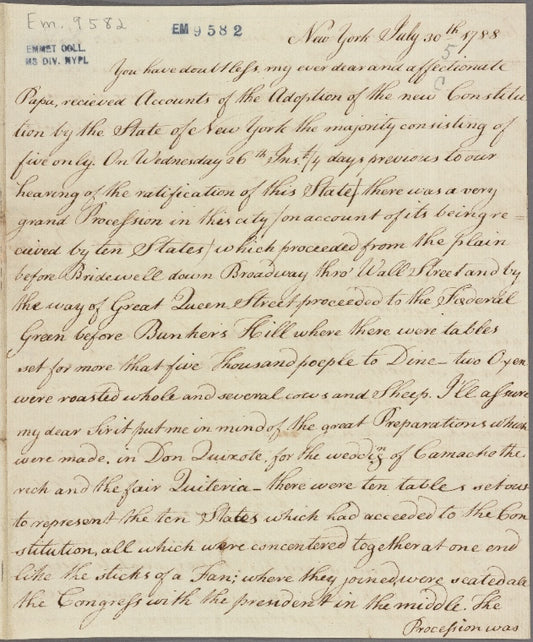 Em. 9582
EM 9 5 8 2
EMMET COLL.
MS DIV. NYPL
New York July 30th 1788
5
C
You have doubtless, my ever dear and affectionate
Papa, recieved Accounts of the Adoption of the new Constitu
tion by the State of New York the majority consisting of
five only. On Wednesday 26th Inst. (4 days previous to our
hearing of the ratification of this State) there was a very
grand Procession in this city (on account of its being re=
ceived by ten States) which proceeded from the plain
before Bridewell down Broadway thro' Wall Street and by
the way of Great Queen Street proceeded to the Federal
Green before Bunkers Hill where there were tables
set for more that five Thousand poeple to Dine - two Oxen
were roasted whole and several cows and Sheep. I'll assure
my dear Sir it put me in mind of the great Preparations which
were made, in Don Quixote, for the wedding of Camacho the
rich and the fair Quiteria - there were ten tables set out
to represent the ten States which had acceeded to the Con
stitution, all which were concentered together at one end
like the sticks of a Fan; where they joined were seated all
the Congress with the president in the middle. The
Procession was